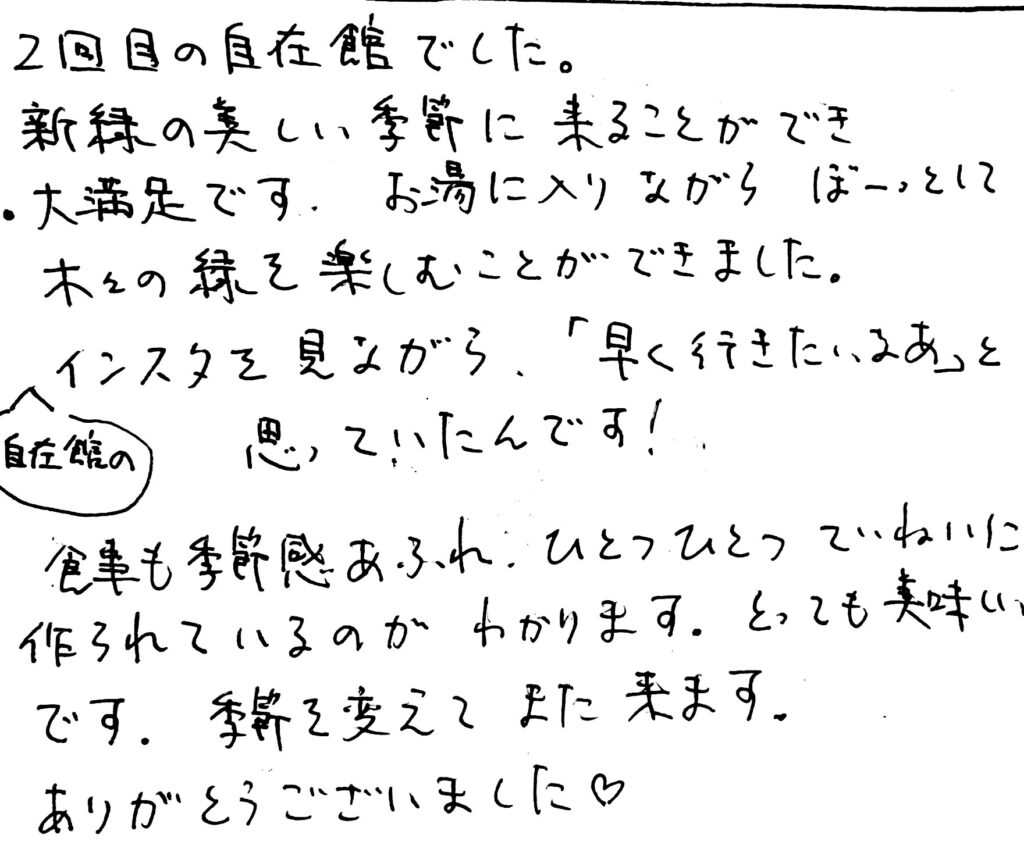 2回目の自在館でした。
新緑の美しい季節に来ることができ
大満足です. お湯に入りながら ぼーっとして
木々の緑を楽しむことができました。
インスタを見ながら、「早く行きたいなあ」と
自在館の
思っていたんです!
食事も季節感あふれ、ひとつひとつていねいに
作られているのがわかります。とっても美味しい
です. 季節を変えてまた来ます。
ありがとうございました♡